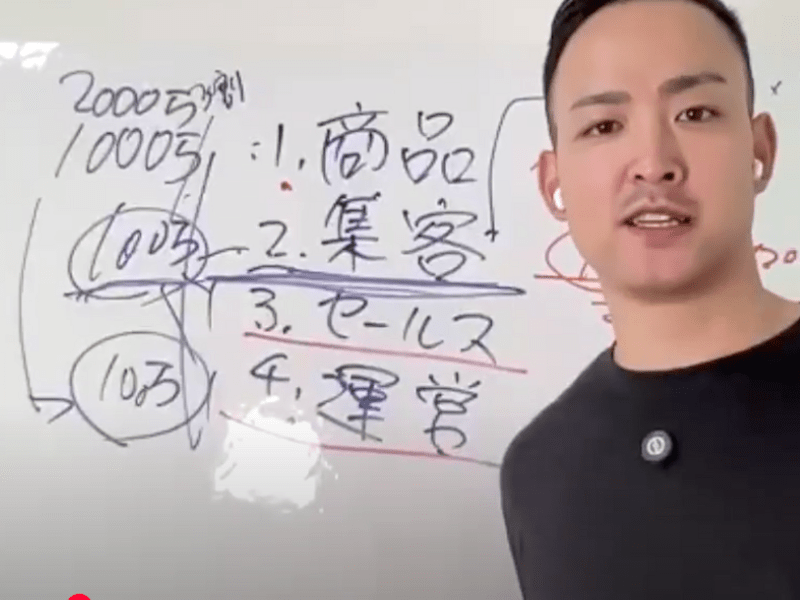 2000万
1000万 : 1. 商品
100万 2. 集客
3. セールス
10万 4. 運営